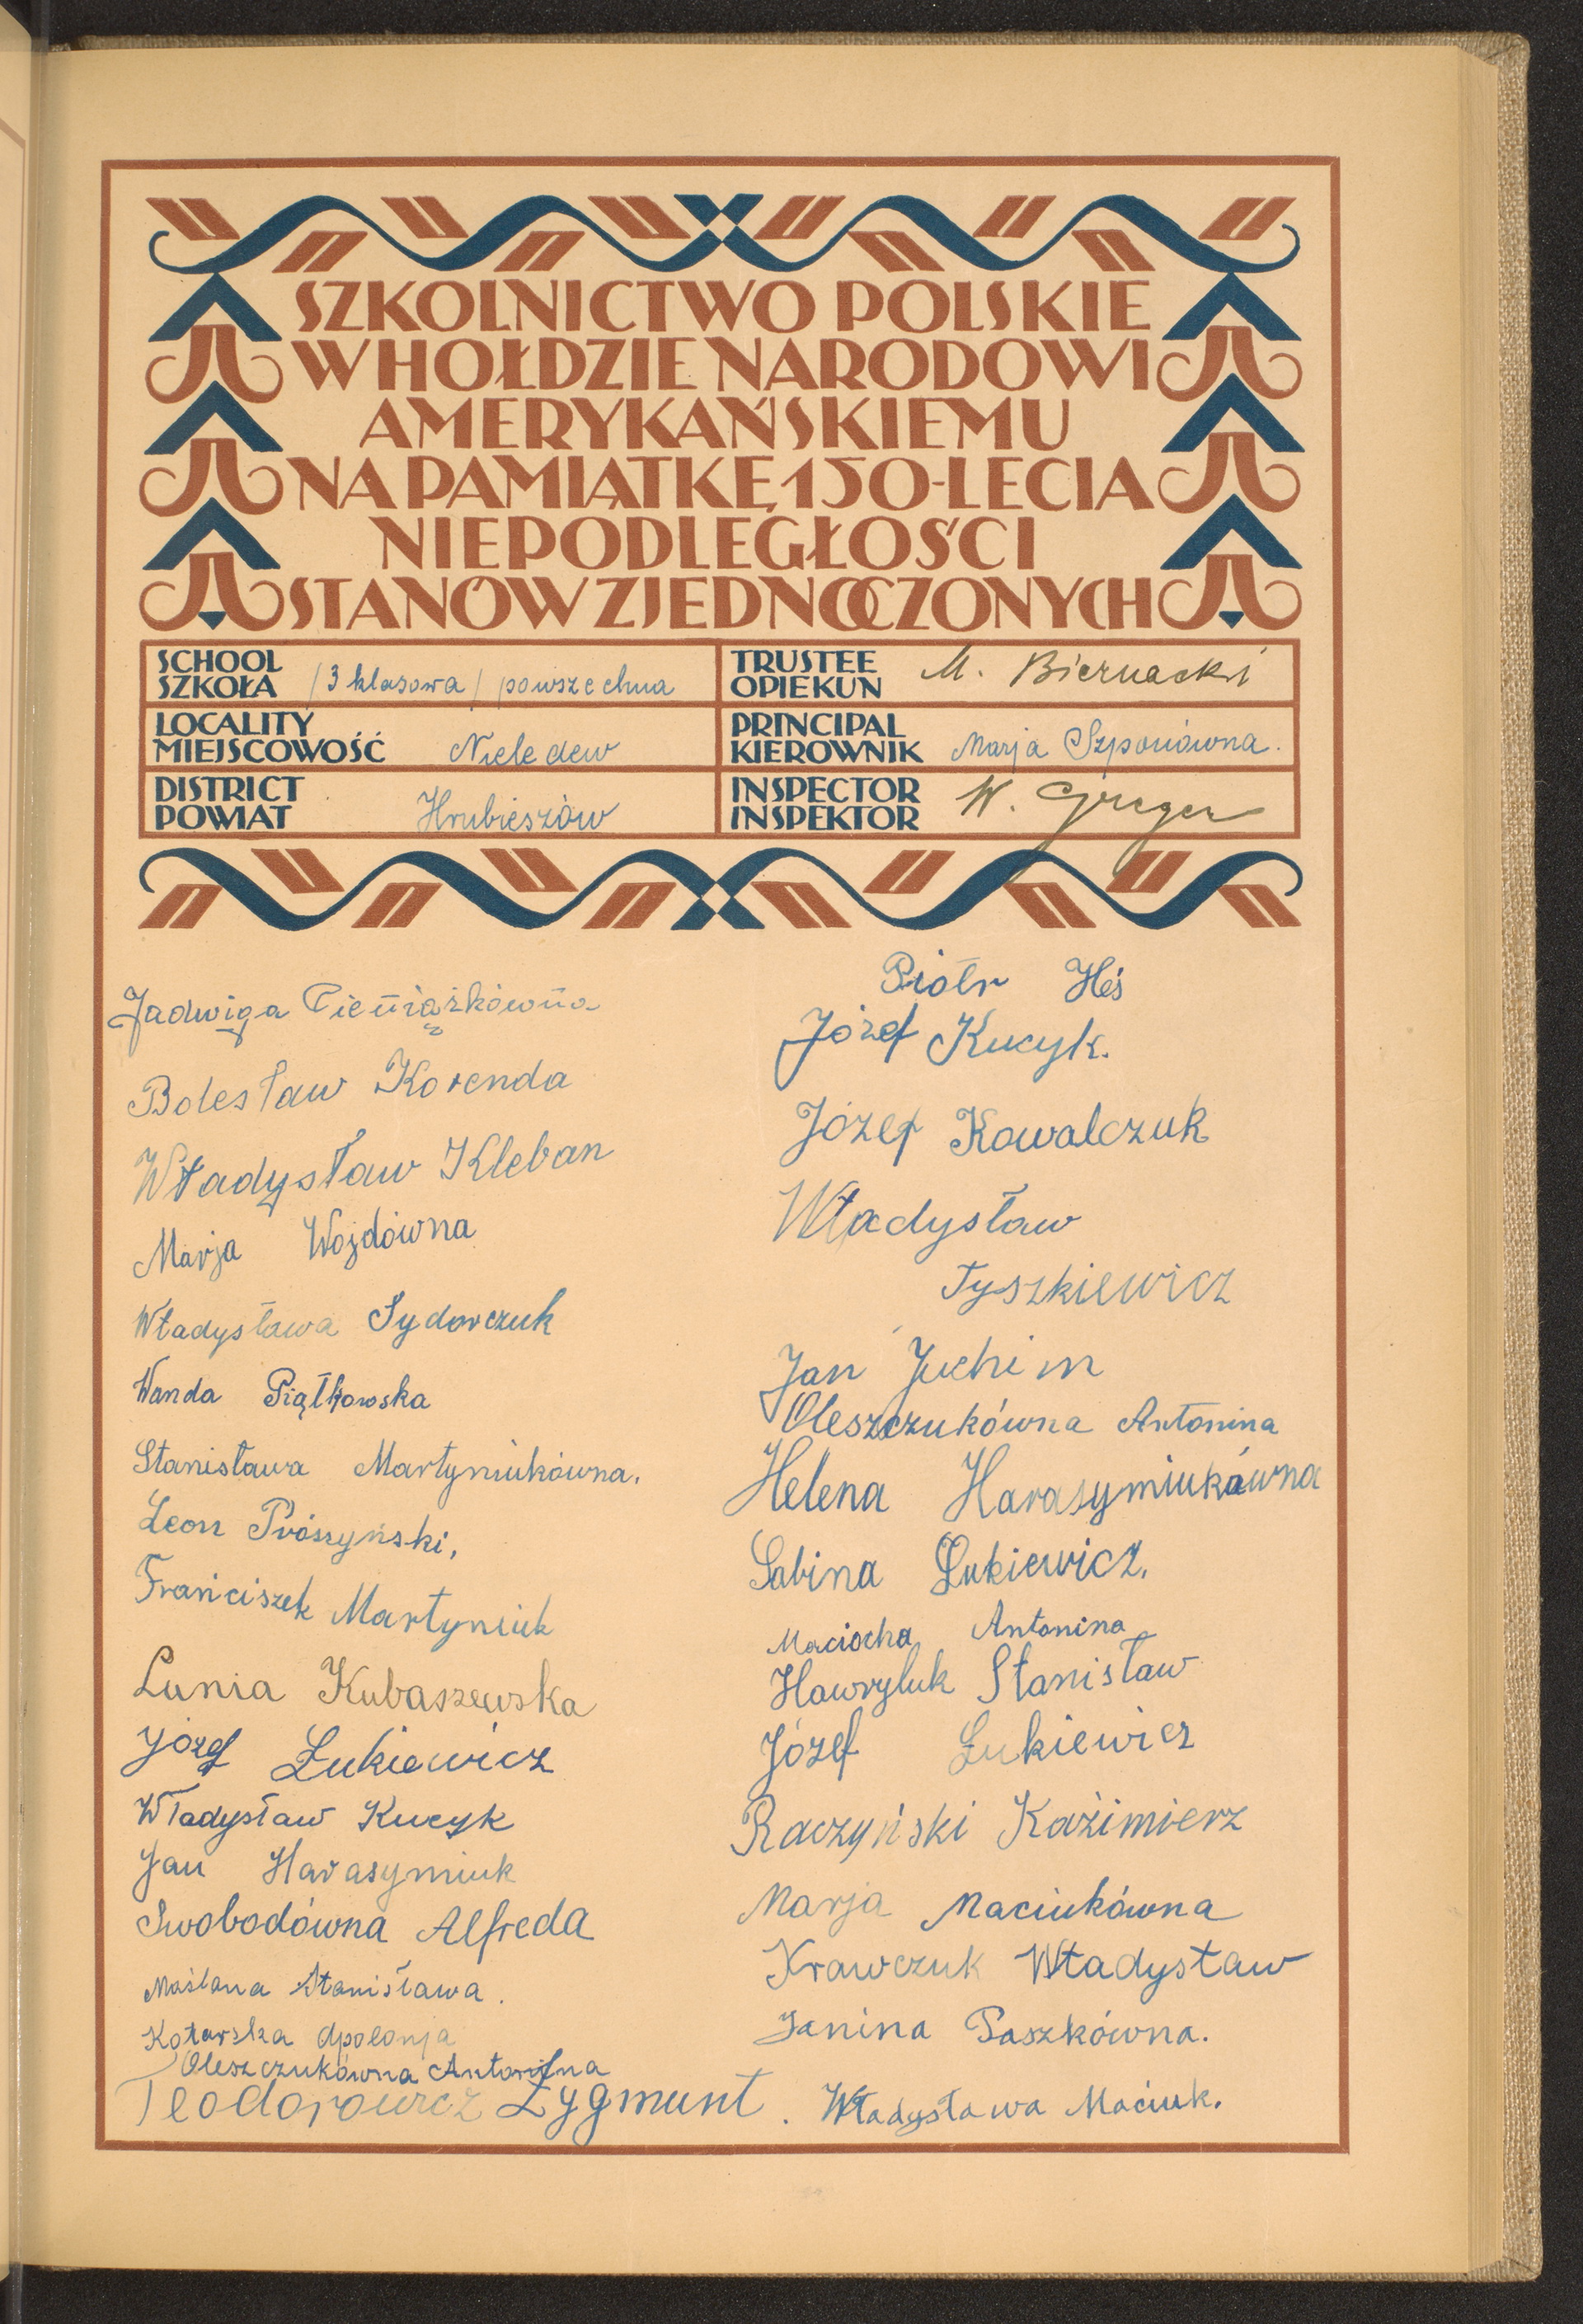 SZKOLNICTWO POLSKIE
W HOŁDZIE NARODOWI
AMERYKAŃSKIEMU
NA PAMIĄTKĘ 150-LECIA
NIEPODLEGŁOŚCI
STANÓW ZJEDNOCZONYCH
SCHOOL
SZKOŁA /3 klasowa/ powszechna
TRUSTEE
OPIEKUN M. Biernacki
LOCALITY
MIEJSCOWOŚĆ Nieledew
PRINCIPAL
KIEROWNIK Marja Szponówna.
DISTRICT
POWIAT Hrubieszów
INSPECTOR
INSPEKTOR W. Greger
Jadwiga Pieniążkówna
Bolesław Korenda
Władysław Kleban
Marja Wojdówna
Władysława Sydorczuk
Wanda Piątkowska
Stanisława Martyniukówna.
Leon Prószyński,
Franciszek Martyniuk
Lunia Kubaszewska
Józef Łukiewicz
Władysław Kucyk
Jan Harasymiuk
Swobodówna Alfreda
Maślana Stanisława.
Kotarska Apolonja
Oleszczukówna Antonina
Teodorowicz Zygmunt.
Piotr Heś
Józef Kucyk.
Józef Kowalczuk
Władysław
Tyszkiewicz
Jan Juchim
Oleszczukówna Antonina
Helena Harasymiukówna
Sabina Łukiewicz.
Maciocha Antonina
Hawryluk Stanisław
Józef Łukiewicz
Raczyński Kazimierz
Marja Maciukówna
Krawczuk Władysław
Janina Paszkówna.
Władysława Maciuk.